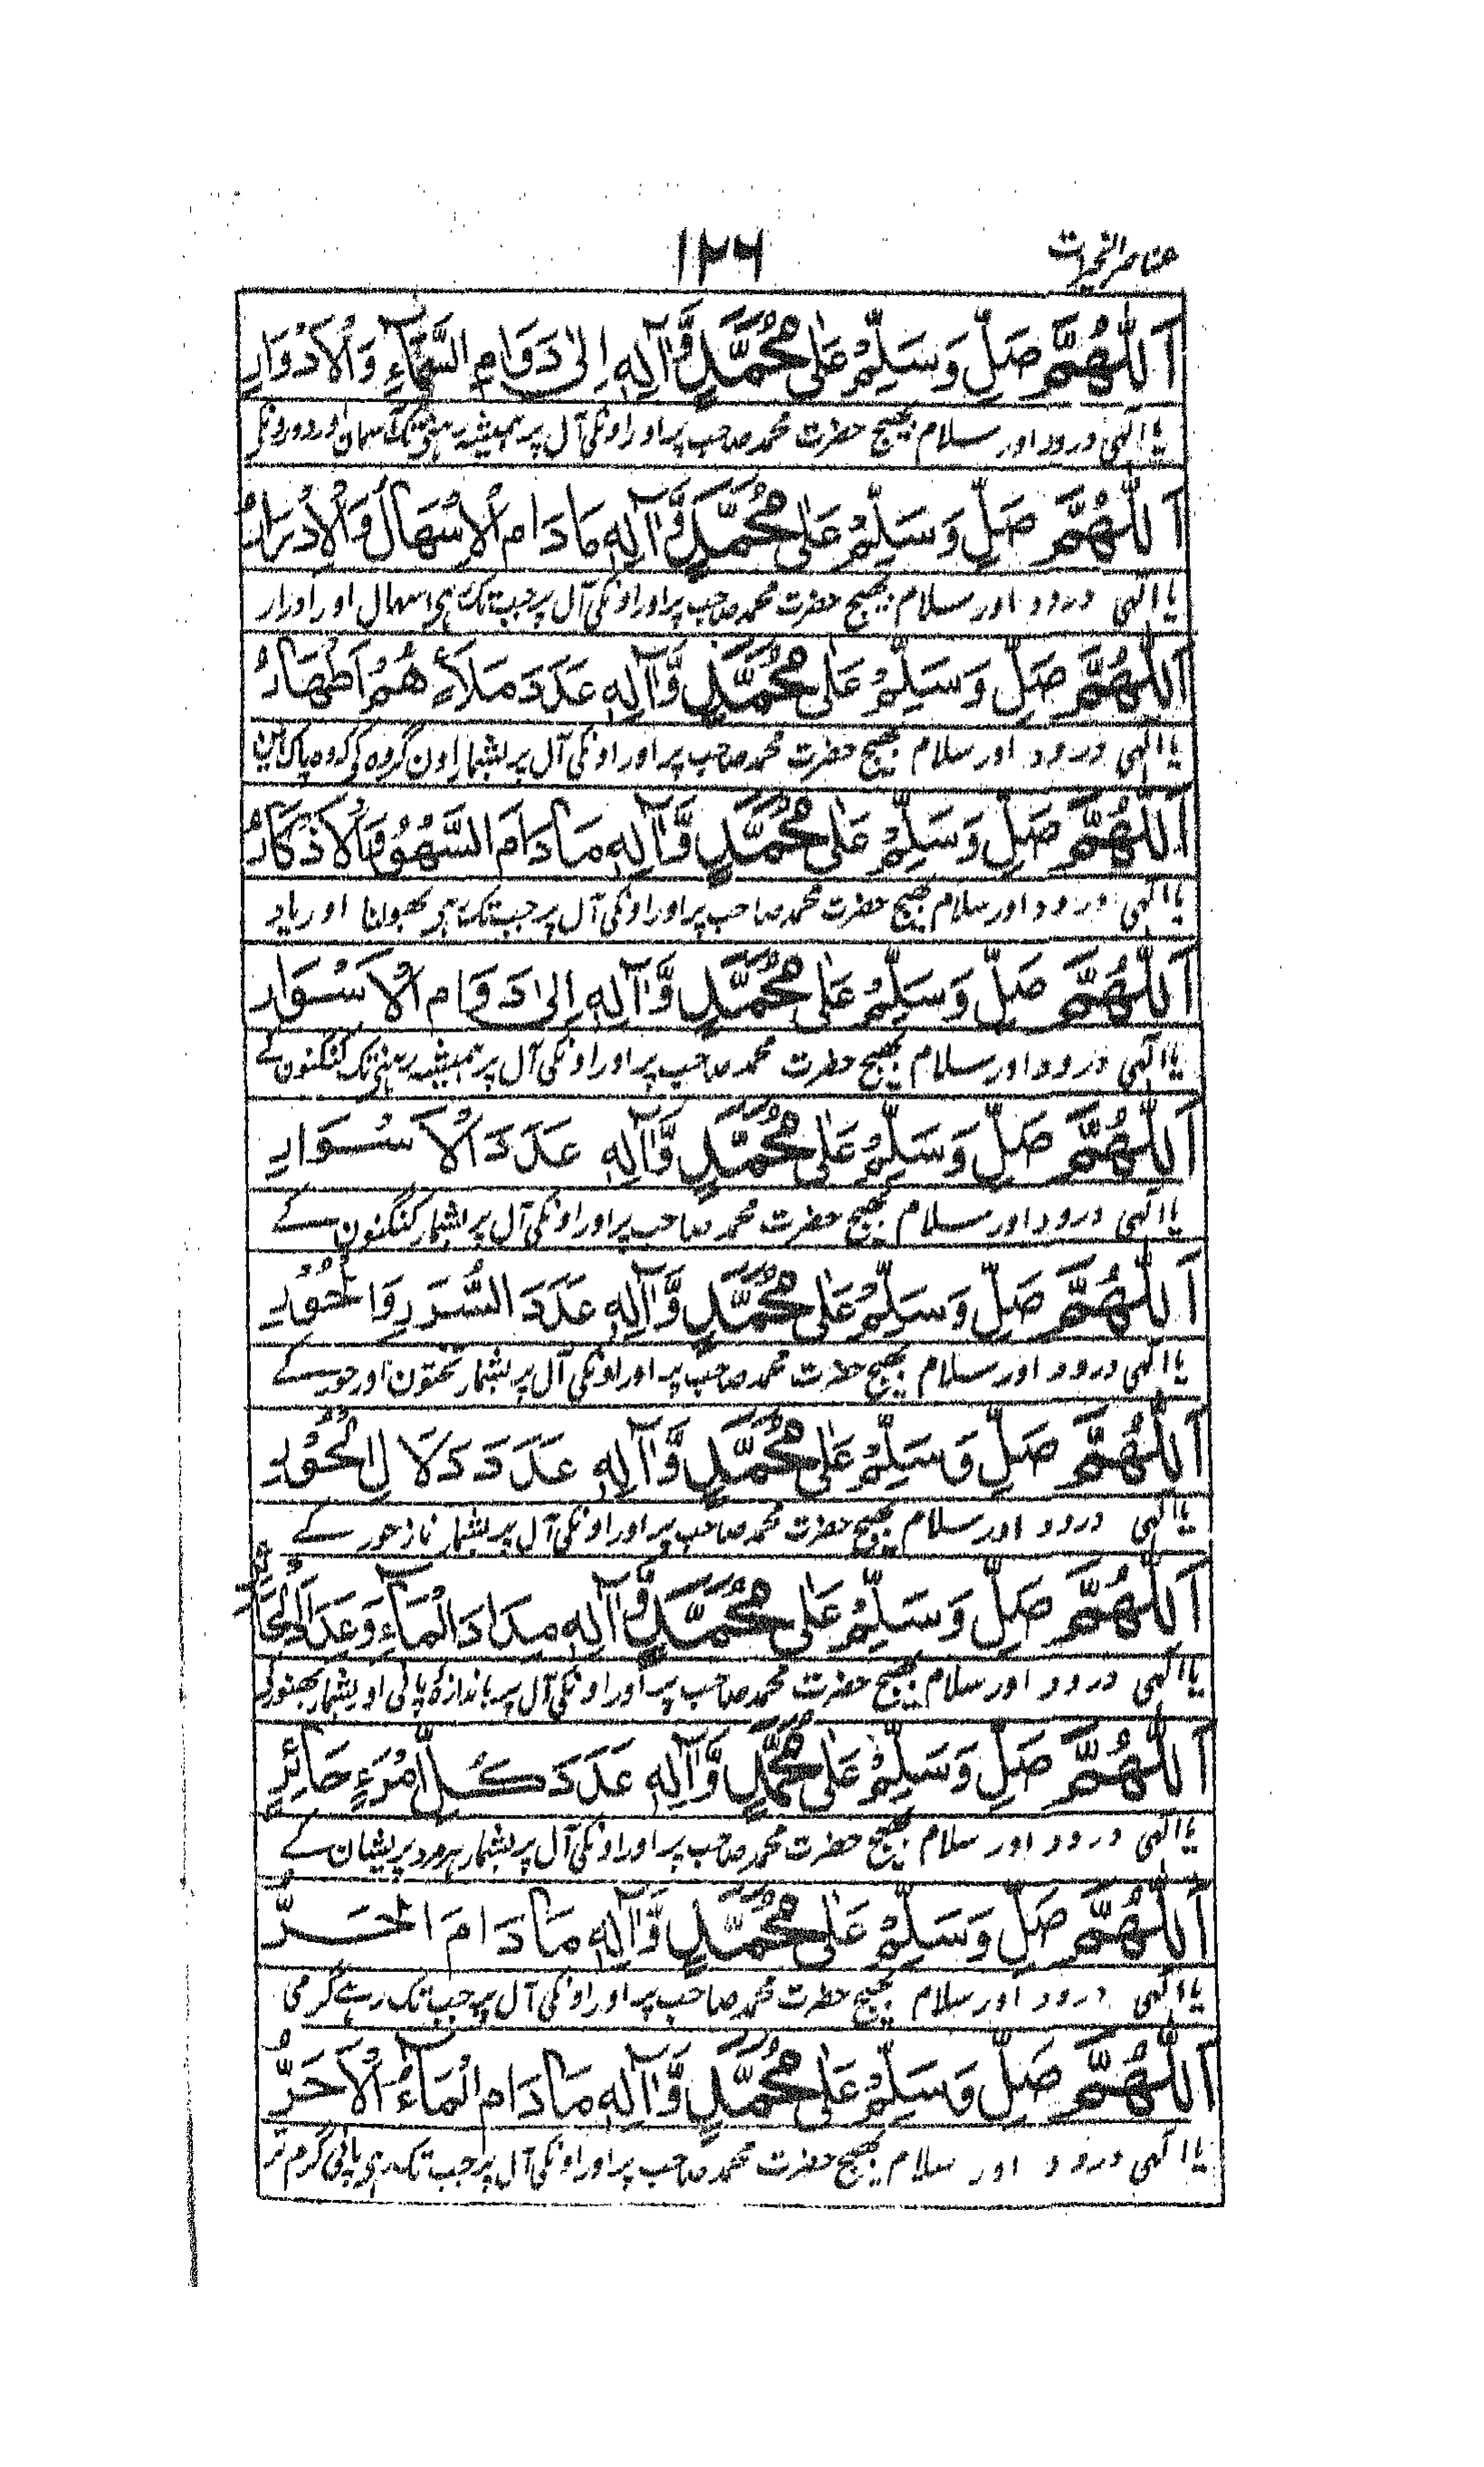 عناصر التحیات ۱۲۶
اَللّٰهُمَّ صَلِّ وَسَلِّمْ عَلٰی مُحَمَّدٍ وَّاٰلِهٖ اِلٰی دَوَامِ السَّمَآءِ وَالْاَدْوَارِ
یا الٰہی درود اور سلام بھیج حضرت محمد صاحب پر اور اونکی آل پر ہمیشہ رہنی تک آسمان اور دورونکی
اَللّٰهُمَّ صَلِّ وَسَلِّمْ عَلٰی مُحَمَّدٍ وَّاٰلِهٖ مَا دَامَ الْاِسْهَالُ وَالْاِدْرَارُ
یا الٰہی درود اور سلام بھیج حضرت محمد صاحب پر اور اونکی آل پر جب تک ہی اسہال اور ادرار
اَللّٰهُمَّ صَلِّ وَسَلِّمْ عَلٰی مُحَمَّدٍ وَّاٰلِهٖ عَدَدَ مَلَاءٍ هُمْ اَطْهَارُ
یا الٰہی درود اور سلام بھیج حضرت محمد صاحب پر اور اونکی آل پر بشمار اون گروہ کی کہ وہ پاک ہین
اَللّٰهُمَّ صَلِّ وَسَلِّمْ عَلٰی مُحَمَّدٍ وَّاٰلِهٖ مَا دَامَ السَّهْوُ وَالْاَذْكَارُ
یا الٰہی درود اور سلام بھیج حضرت محمد صاحب پر اور اونکی آل پر جب تک ہی بھولنا اور یاد
اَللّٰهُمَّ صَلِّ وَسَلِّمْ عَلٰی مُحَمَّدٍ وَّاٰلِهٖ اِلٰی دَوَامِ الْاَسْوَارِ
یا الٰہی درود اور سلام بھیج حضرت محمد صاحب پر اور اونکی آل پر ہمیشہ رہنی تک کنگنون کے
اَللّٰهُمَّ صَلِّ وَسَلِّمْ عَلٰی مُحَمَّدٍ وَّاٰلِهٖ عَدَدَ الْاَسْوَارِ
یا الٰہی درود اور سلام بھیج حضرت محمد صاحب پر اور اونکی آل پر بشمار کنگنون کے
اَللّٰهُمَّ صَلِّ وَسَلِّمْ عَلٰی مُحَمَّدٍ وَّاٰلِهٖ عَدَدَ السُّرَرِ وَالْحُوْرِ
یا الٰہی درود اور سلام بھیج حضرت محمد صاحب پر اور اونکی آل پر بشمار تختون اور حور کے
اَللّٰهُمَّ صَلِّ وَسَلِّمْ عَلٰی مُحَمَّدٍ وَّاٰلِهٖ عَدَدَ دَلَالِ الْحُوْرِ
یا الٰہی درود اور سلام بھیج حضرت محمد صاحب پر اور اونکی آل پر بشمار ناز حور کے
اَللّٰهُمَّ صَلِّ وَسَلِّمْ عَلٰی مُحَمَّدٍ وَّاٰلِهٖ مِدَادَ الْمَآءِ وَعَدَدَ
یا الٰہی درود اور سلام بھیج حضرت محمد صاحب پر اور اونکی آل پر باندازہ پانی اور بشمار بھنور کی
اَللّٰهُمَّ صَلِّ وَسَلِّمْ عَلٰی مُحَمَّدٍ وَّاٰلِهٖ عَدَدَ كُلِّ امْرَءٍ حَائِرٍ
یا الٰہی درود اور سلام بھیج حضرت محمد صاحب پر اور اونکی آل پر بشمار ہر مرد پریشان کے
اَللّٰهُمَّ صَلِّ وَسَلِّمْ عَلٰی مُحَمَّدٍ وَّاٰلِهٖ مَا دَامَ الْحَرُّ
یا الٰہی درود اور سلام بھیج حضرت محمد صاحب پر اور اونکی آل پر جب تک رہے گرمی
اَللّٰهُمَّ صَلِّ وَسَلِّمْ عَلٰی مُحَمَّدٍ وَّاٰلِهٖ مَا دَامَ الْمَآءُ الْاَحَرُّ
یا الٰہی درود اور سلام بھیج حضرت محمد صاحب پر اور اونکی آل پر جب تک رہی پانی گرم تر